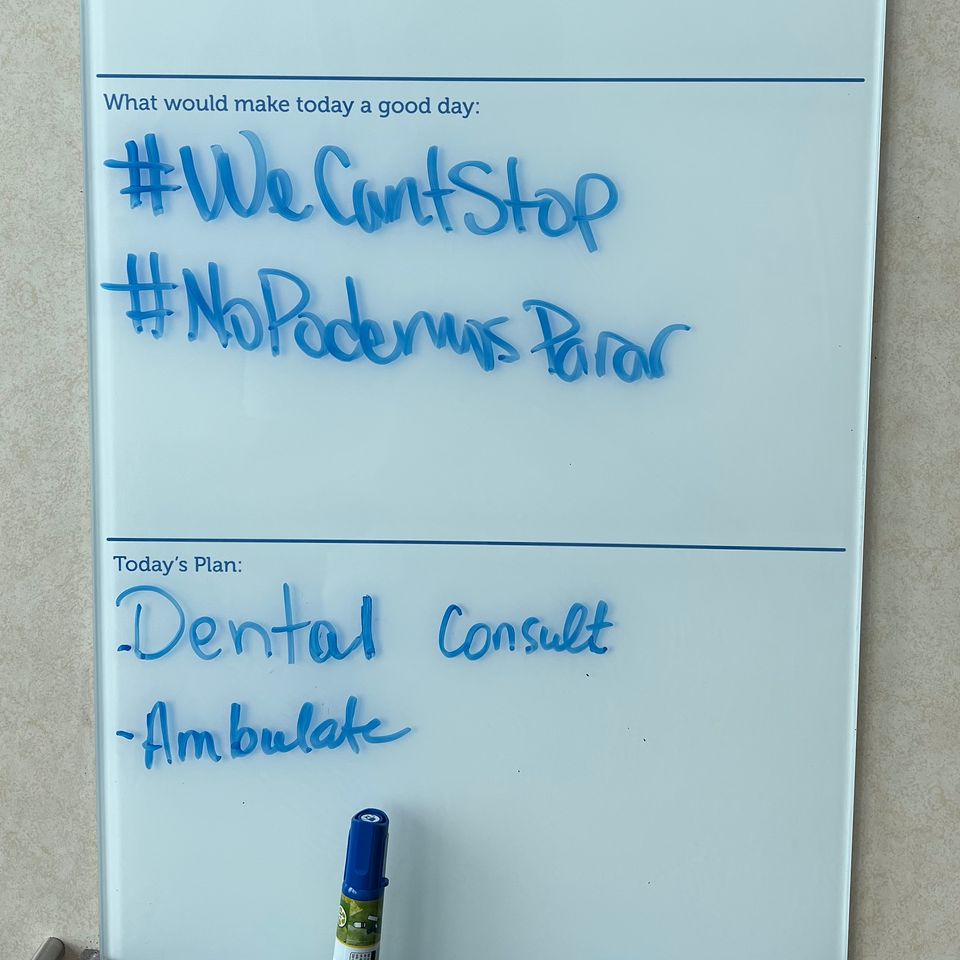 What would make today a good day:
#WeCantStop
#NoPodemosParar
Today's Plan:
-Dental Consult
-Ambulate